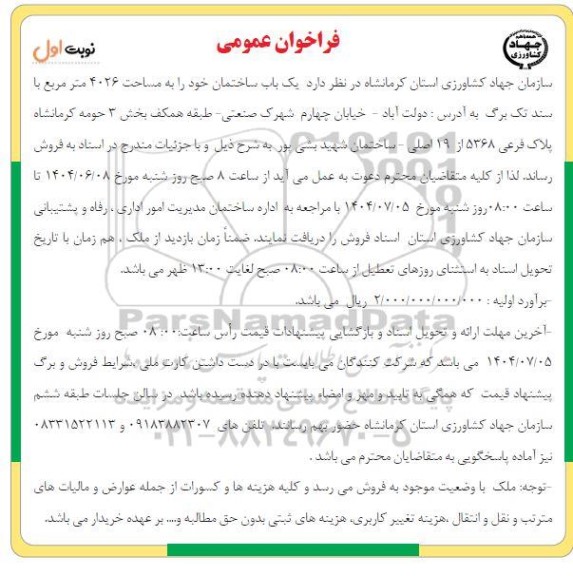 جهاد کشاورزی
فراخوان عمومی
نوبت اول
سازمان جهاد کشاورزی استان کرمانشاه در نظر دارد یک باب ساختمان خود را به مساحت ۴۰۲۶ متر مربع با
سند تک برگ به آدرس : دولت آباد - خیابان چهارم شهرک صنعتی- طبقه همکف بخش ۳ حومه کرمانشاه
پلاک فرعی ۵۳۶۸ از ۱۹ اصلی - ساختمان شهید بشی پور به شرح ذیل و با جزئیات مندرج در اسناد به فروش
رساند. لذا از کلیه متقاضیان محترم دعوت به عمل می آید از ساعت ۸ صبح روز شنبه مورخ ۱۴۰۴/۰۶/۰۸ تا
ساعت ۰۸:۰۰روز شنبه مورخ ۱۴۰۴/۰۷/۰۵ با مراجعه به اداره ساختمان مدیریت امور اداری ، رفاه و پشتیبانی
سازمان جهاد کشاورزی استان اسناد فروش را دریافت نمایند. ضمناً زمان بازدید از ملک ، هم زمان با تاریخ
تحویل اسناد به استثنای روزهای تعطیل از ساعت ۰۸:۰۰ صبح لغایت ۱۳:۰۰ ظهر می باشد.
-برآورد اولیه : ۲/۰۰۰/۰۰۰/۰۰۰/۰۰۰ ریال می باشد.
-آخرین مهلت ارائه و تحویل اسناد و بازگشایی پیشنهادات قیمت رأس ساعت:۰۸:۰۰ صبح روز شنبه مورخ
۱۴۰۴/۰۷/۰۵ می باشد که شرکت کنندگان می بایست با در دست داشتن کارت ملی ،شرایط فروش و برگ
پیشنهاد قیمت که همگی به تایید و مهر و امضاء پیشنهاد دهنده رسیده باشد در سالن جلسات طبقه ششم
سازمان جهاد کشاورزی استان کرمانشاه حضور بهم رسانند. تلفن های ۰۹۱۸۳۸۸۲۳۰۷ و ۰۸۳۳۱۵۲۲۱۱۳
نیز آماده پاسخگویی به متقاضیان محترم می باشد .
-توجه: ملک با وضعیت موجود به فروش می رسد و کلیه هزینه ها و کسورات از جمله عوارض و مالیات های
مترتب و نقل و انتقال ،هزینه تغییر کاربری، هزینه های ثبتی بدون حق مطالبه و.... بر عهده خریدار می باشد.
ParsNamadData
۰۲۱-۸۸۳۴۹۶۷۰-۵